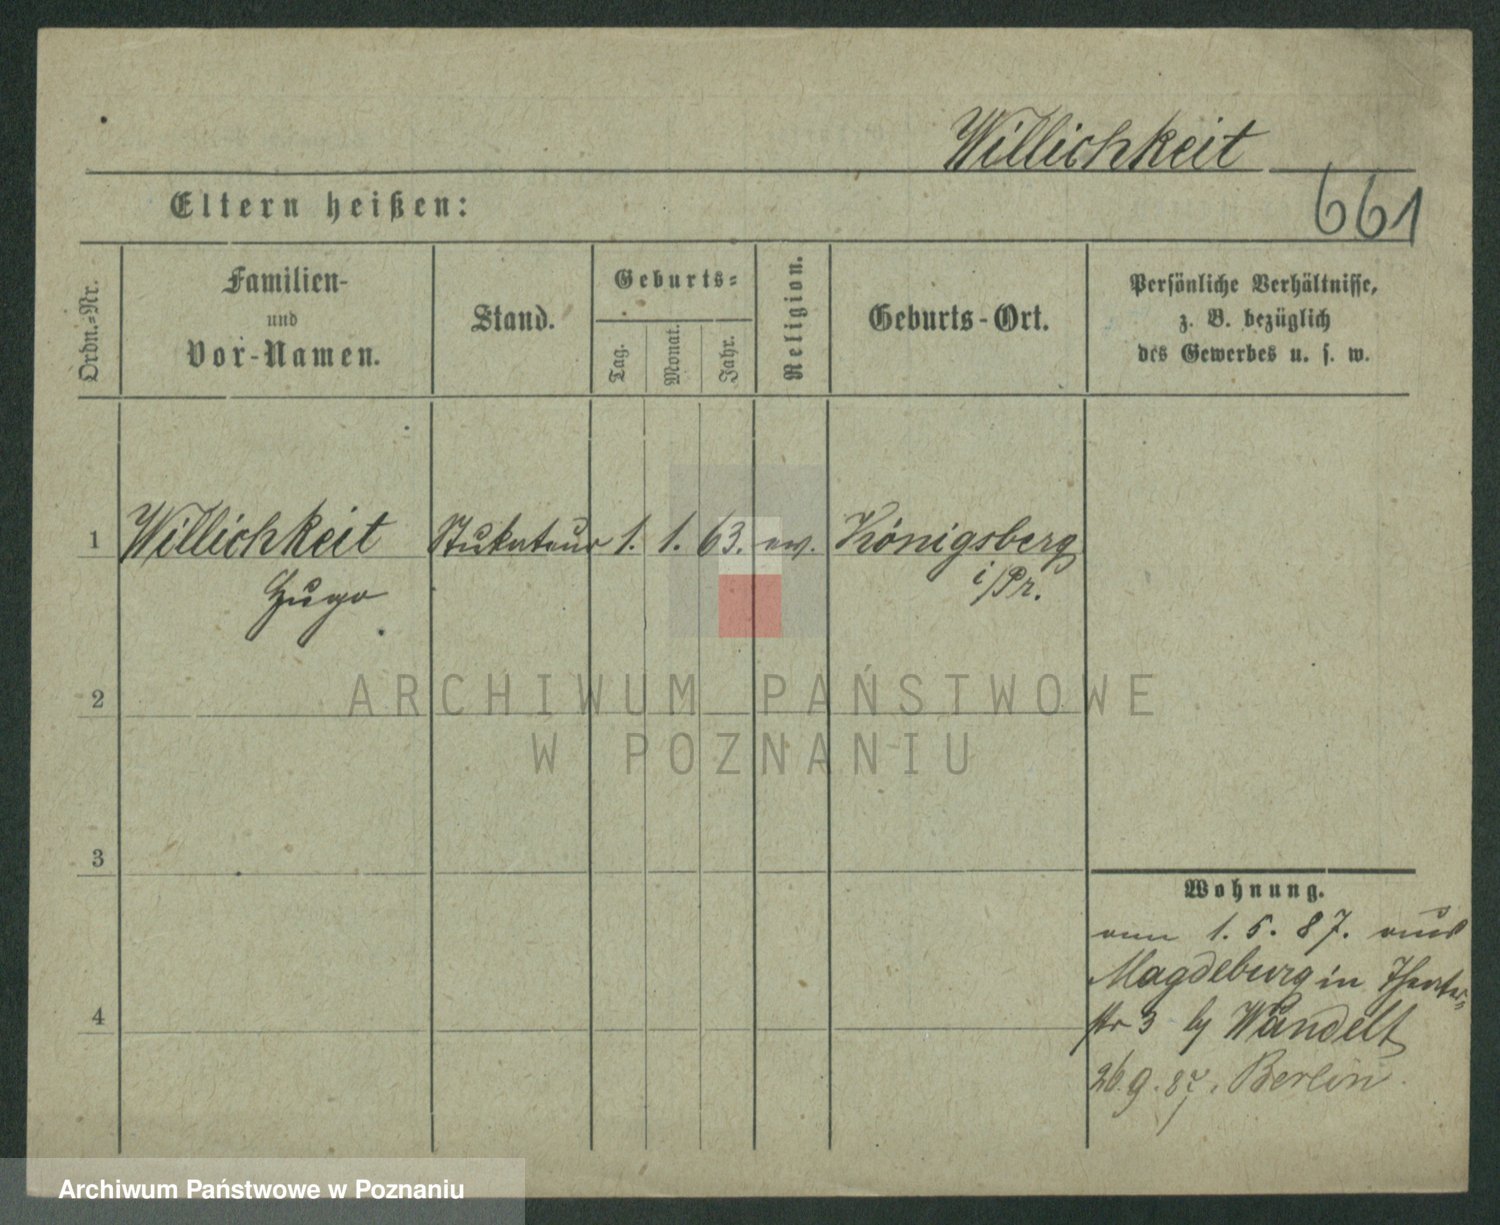 Willichkeit
661
Eltern heißen:
Ordn.-Nr.
Familien-
und
Vor-Namen.
Stand.
Geburts-
Tag.
Monat.
Jahr.
Religion.
Geburts-Ort.
Persönliche Verhältnisse,
z. B. bezüglich
des Gewerbes u. s. w.
1 Willichkeit Stukateur 1. 1. 63. ev. Königsberg
Hugo i/Pr.
2
ARCHIWUM PAŃSTWOWE
W POZNANIU
3
Wohnung.
1. 5. 87. aus
Magdeburg in Theater-
4
str 3 by Wandelt
26.9.87. Berlin.
Archiwum Państwowe w Poznaniu